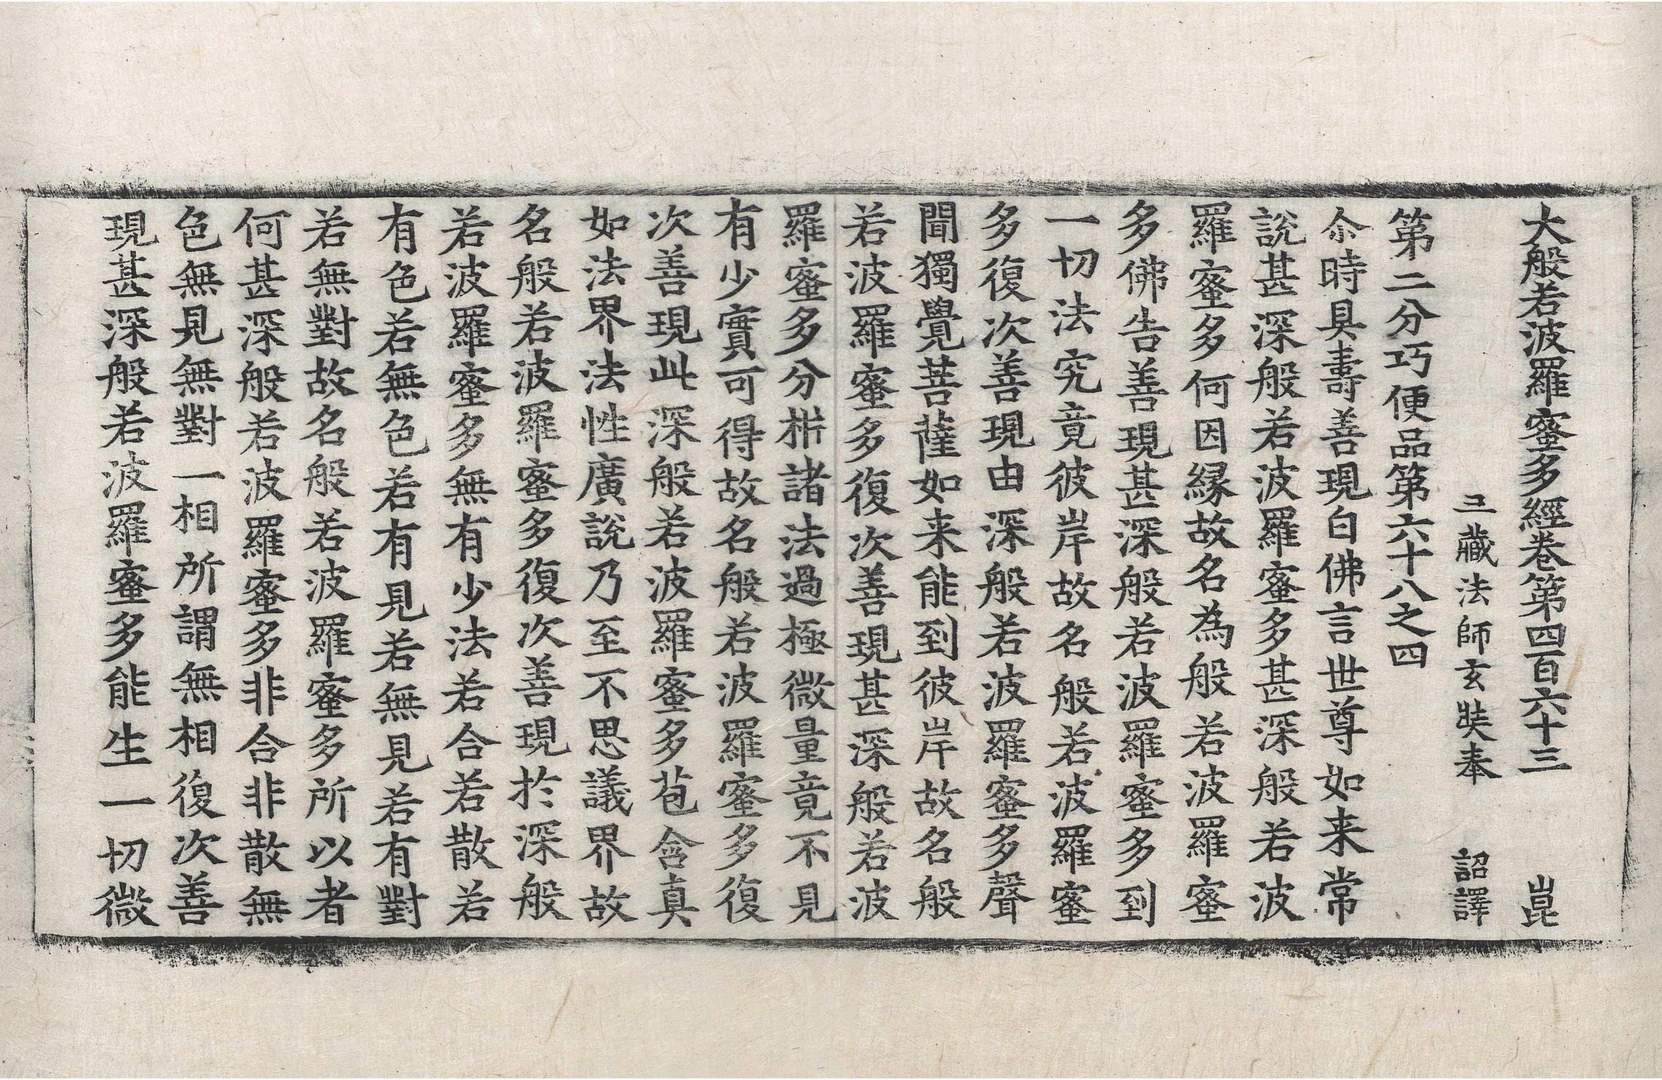 大般若波羅蜜多經卷第四百六十三 崑
三藏法師玄奘奉 詔譯
第二分巧便品第六十八之四
尒時具壽善現白佛言世尊如来常
說甚深般若波羅蜜多甚深般若波
羅蜜多何因緣故名為般若波羅蜜
多佛告善現甚深般若波羅蜜多到
一切法究竟彼岸故名般若波羅蜜
多復次善現由深般若波羅蜜多聲
聞獨覺菩薩如来能到彼岸故名般
若波羅蜜多復次善現甚深般若波
羅蜜多分析諸法過極微量竟不見
有少實可得故名般若波羅蜜多復
次善現此深般若波羅蜜多苞含真
如法界法性廣說乃至不思議界故
名般若波羅蜜多復次善現於深般
若波羅蜜多無有少法若合若散若
有色若無色若有見若無見若有對
若無對故名般若波羅蜜多所以者
何甚深般若波羅蜜多非合非散無
色無見無對一相所謂無相復次善
現甚深般若波羅蜜多能生一切微